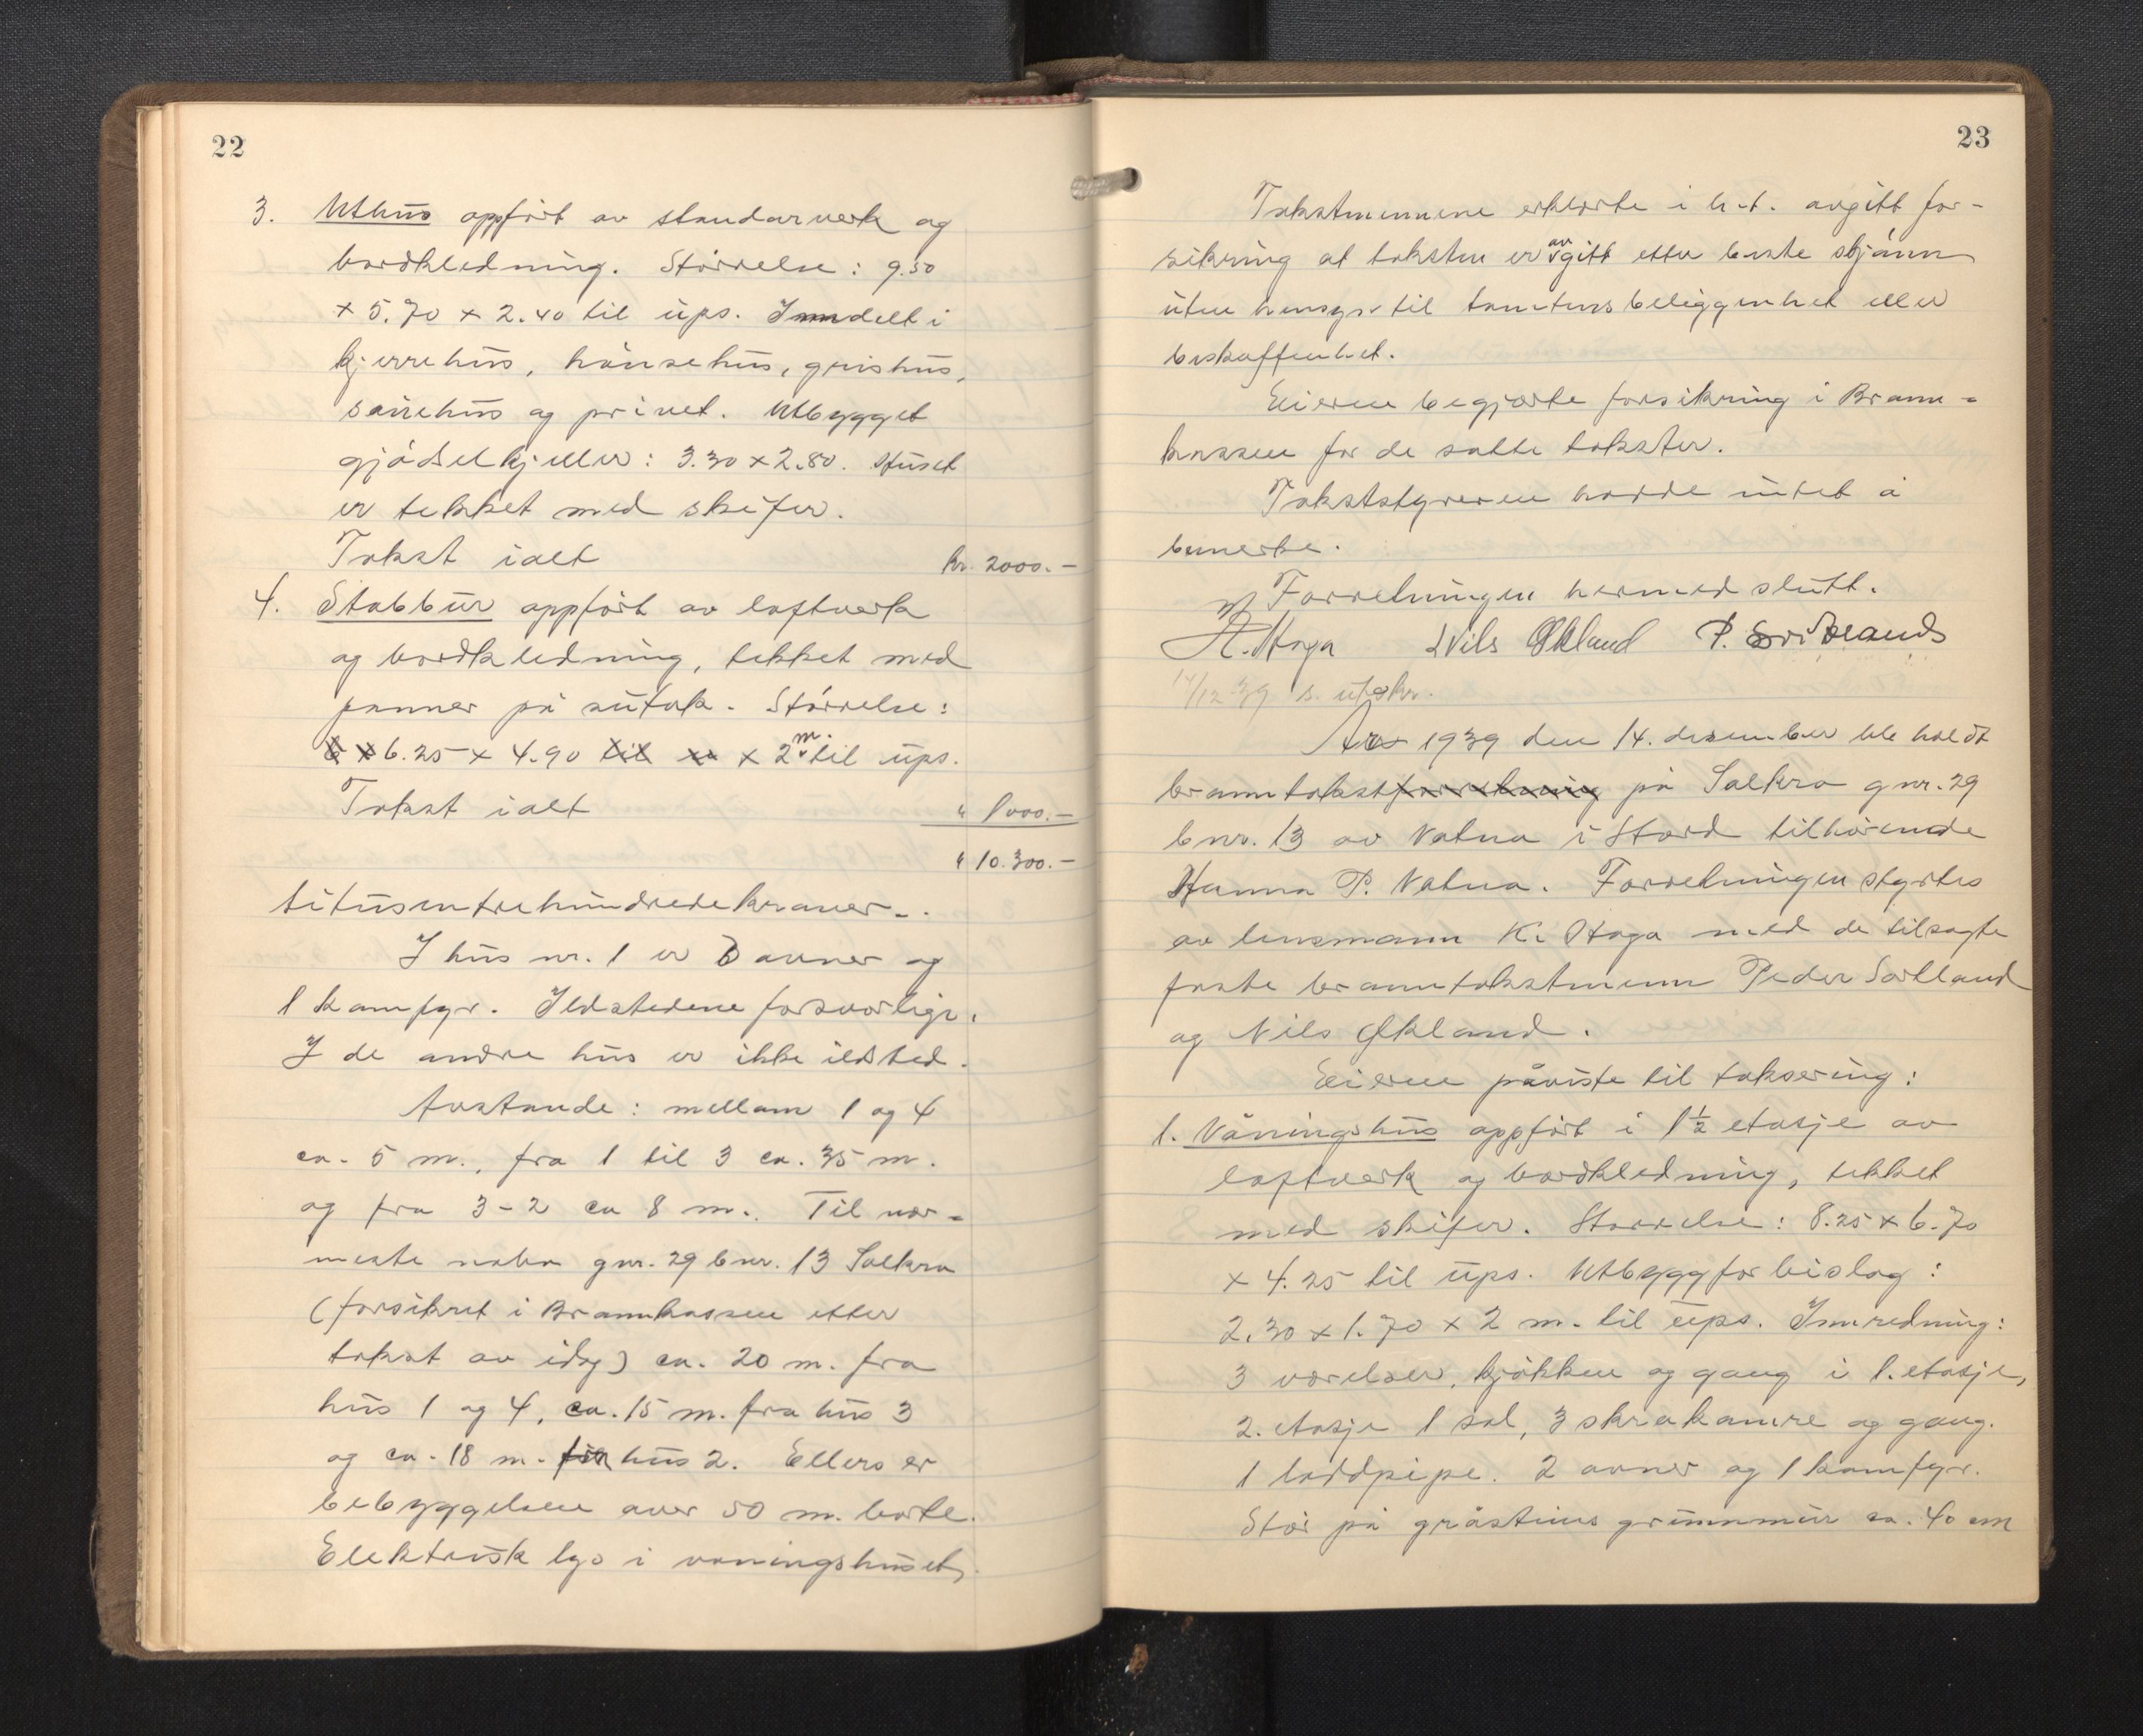 22
3. Uthus oppført av standarverk og
bordkledning. Størrelse: 9.50
x 5.70 x 2.40 til ups. Inndelt i
kjerrehus, hønsehus, grishus,
sauehus og privet. Utbygget
gjødselkjeller: 3.30 x 2.80. Huset
er tekket med skifer.
Takst ialt kr. 2000.-
4. Stabbur oppført av loftverk
og bordkledning, tekket med
panner på sutak. Størrelse:
6.25 x 4.90 x 2 m. til ups.
Takst ialt " 1000.-
" 10.300.-
titusentrehundredekroner-.
I hus nr. 1 er 3 ovner og
1 komfyr. Ildstedene forsvarlige.
I de andre hus er ikke ildsted.
Avstande: mellom 1 og 4
ca. 5 m., fra 1 til 3 ca. 35 m.
og fra 3-2 ca 8 m. Til nær-
meste nabo gnr. 29 bnr. 13 Solkro
(forsikret i Brannkassen etter
takst av idag) ca. 20 m. fra
hus 1 og 4, ca. 15 m. fra hus 3
og ca. 18 m. fra hus 2. Ellers er
bebyggelsen over 50 m. borte.
Elektrisk lys i våningshuset.
23
Takstmennene erklærte i h.t. avgitt for-
sikring at taksten er avgitt etter beste skjønn
uten hensyn til tomtens beliggenhet eller
beskaffenhet.
Eieren begjærte forsikring i Brann-
kassen for de satte takster.
Takststyreren hadde intet å
bemerke.
Forretningen hermed slutt.
K. Haga Nils Økland P.
14/12 39 s. utskr.
År 1939 den 14. desember ble holdt
branntakst på Solkro gnr. 29
bnr. 13 av Vatna i Stord tilhørende
Hanna P. Vatna. Forretningen styrtes
av lensmann K. Haga med de tilsagte
faste branntakstmenn Peder Sørlland
og Nils Økland.
Eieren påviste til taksering:
1. Våningshus oppført i 1½ etasje av
loftverk og bordkledning, tekket
med skifer. Størrelse: 8.25 x 6.70
x 4.25 til ups. Utbygg for bislag:
2.30 x 1.70 x 2 m. til ups. Innredning:
3 værelser, kjøkken og gang i 1. etasje,
2. etasje 1 sal, 3 skrakamre og gang.
1 loddpipe. 2 ovner og 1 komfyr.
Står på gråsteins grunnmur ca. 40 cm